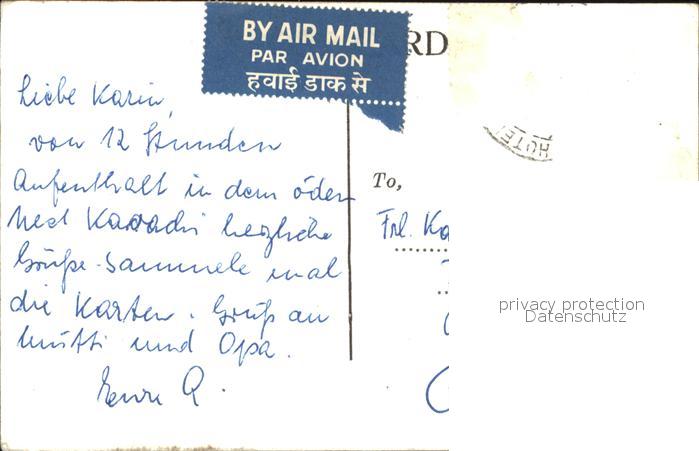 BY AIR MAIL
PAR AVION
हवाई डाक से
RD
HOTEL
Liebe Karin,
von 12 Stunden
Aufenthalt in dem öden
Nest Karachi herzliche
Grüße. Sammele mal
die Karten. Gruß an
Mutti und Opa.
To,
Frl. Ka
privacy protection
Datenschutz